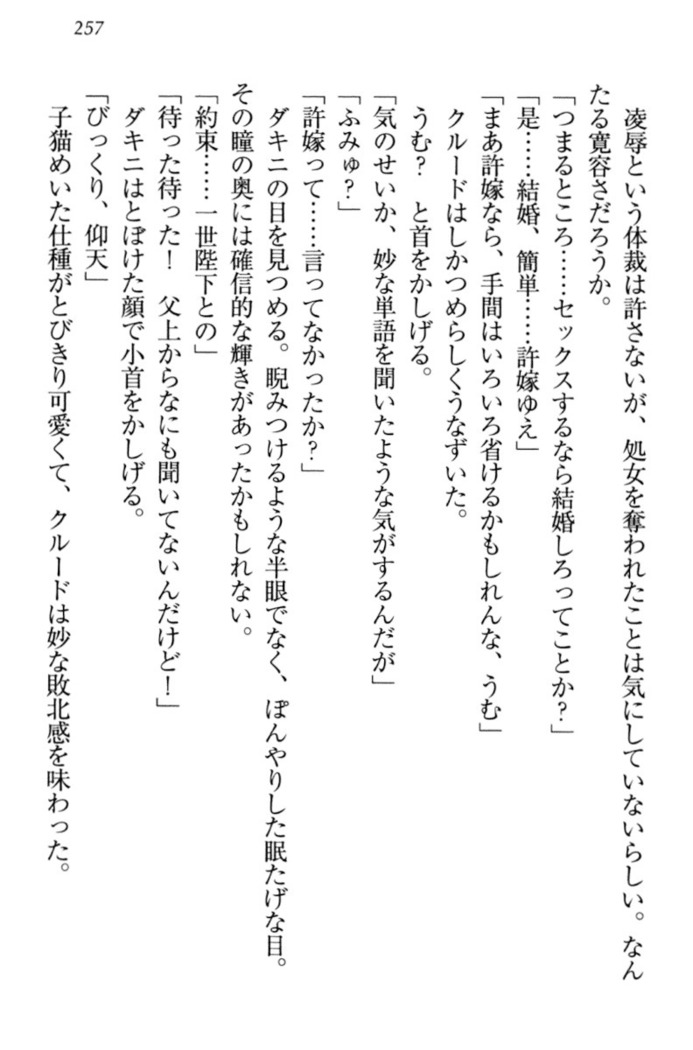 257
凌辱という体裁は許さないが、処女を奪われたことは気にしていないらしい。なん
たる寛容さだろうか。
「つまるところ……セックスするなら結婚しろってことか？」
「是……結婚、簡単……許嫁ゆえ」
「まあ許嫁なら、手間はいろいろ省けるかもしれんな、うむ」
クルードはしかつめらしくうなずいた。
うむ？　と首をかしげる。
「気のせいか、妙な単語を聞いたような気がするんだが」
「ふみゅ？」
「許嫁って……言ってなかったか？」
ダキニの目を見つめる。睨みつけるような半眼でなく、ぽんやりした眠たげな目。
その瞳の奥には確信的な輝きがあったかもしれない。
「約束……一世陛下との」
「待った待った！　父上からなにも聞いてないんだけど！」
ダキニはとぼけた顔で小首をかしげる。
「びっくり、仰天」
子猫めいた仕種がとびきり可愛くて、クルードは妙な敗北感を味わった。